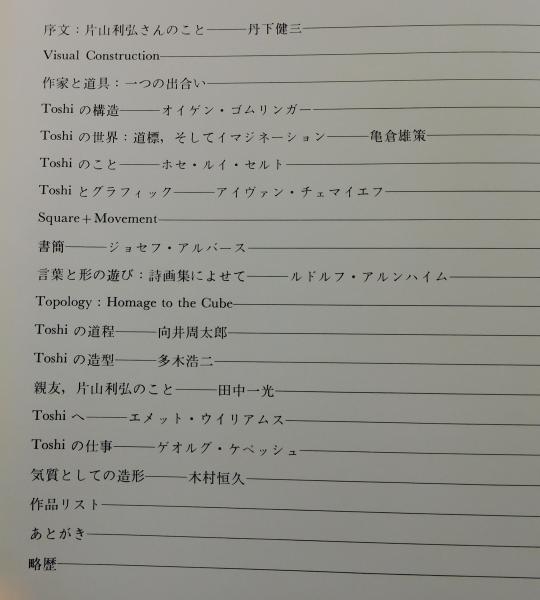 序文：片山利弘さんのこと———丹下健三
Visual Construction
作家と道具：一つの出合い
Toshi の構造———オイゲン・ゴムリンガー
Toshi の世界：道標，そしてイマジネーション———亀倉雄策
Toshi のこと———ホセ・ルイ・セルト
Toshi とグラフィック———アイヴァン・チェマイエフ
Square＋Movement
書簡———ジョセフ・アルバース
言葉と形の遊び：詩画集によせて———ルドルフ・アルンハイム
Topology : Homage to the Cube
Toshi の道程———向井周太郎
Toshi の造型———多木浩二
親友，片山利弘のこと———田中一光
Toshi へ———エメット・ウイリアムス
Toshi の仕事———ゲオルグ・ケペッシュ
気質としての造形———木村恒久
作品リスト
あとがき
略歴